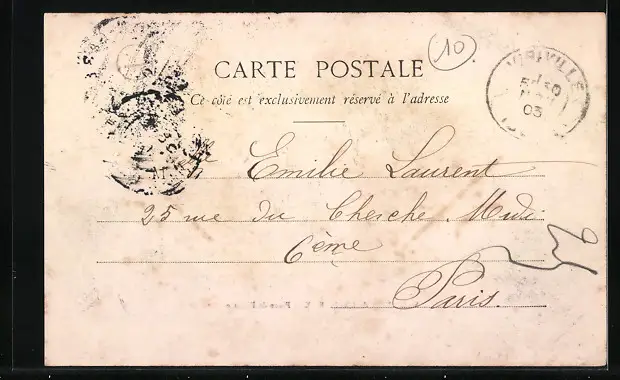 10
CARTE POSTALE
Ce côté est exclusivement réservé à l'adresse
VIRIVILLE
03
Emilie Laurent
25 rue du Cherche Midi
6ème
Paris